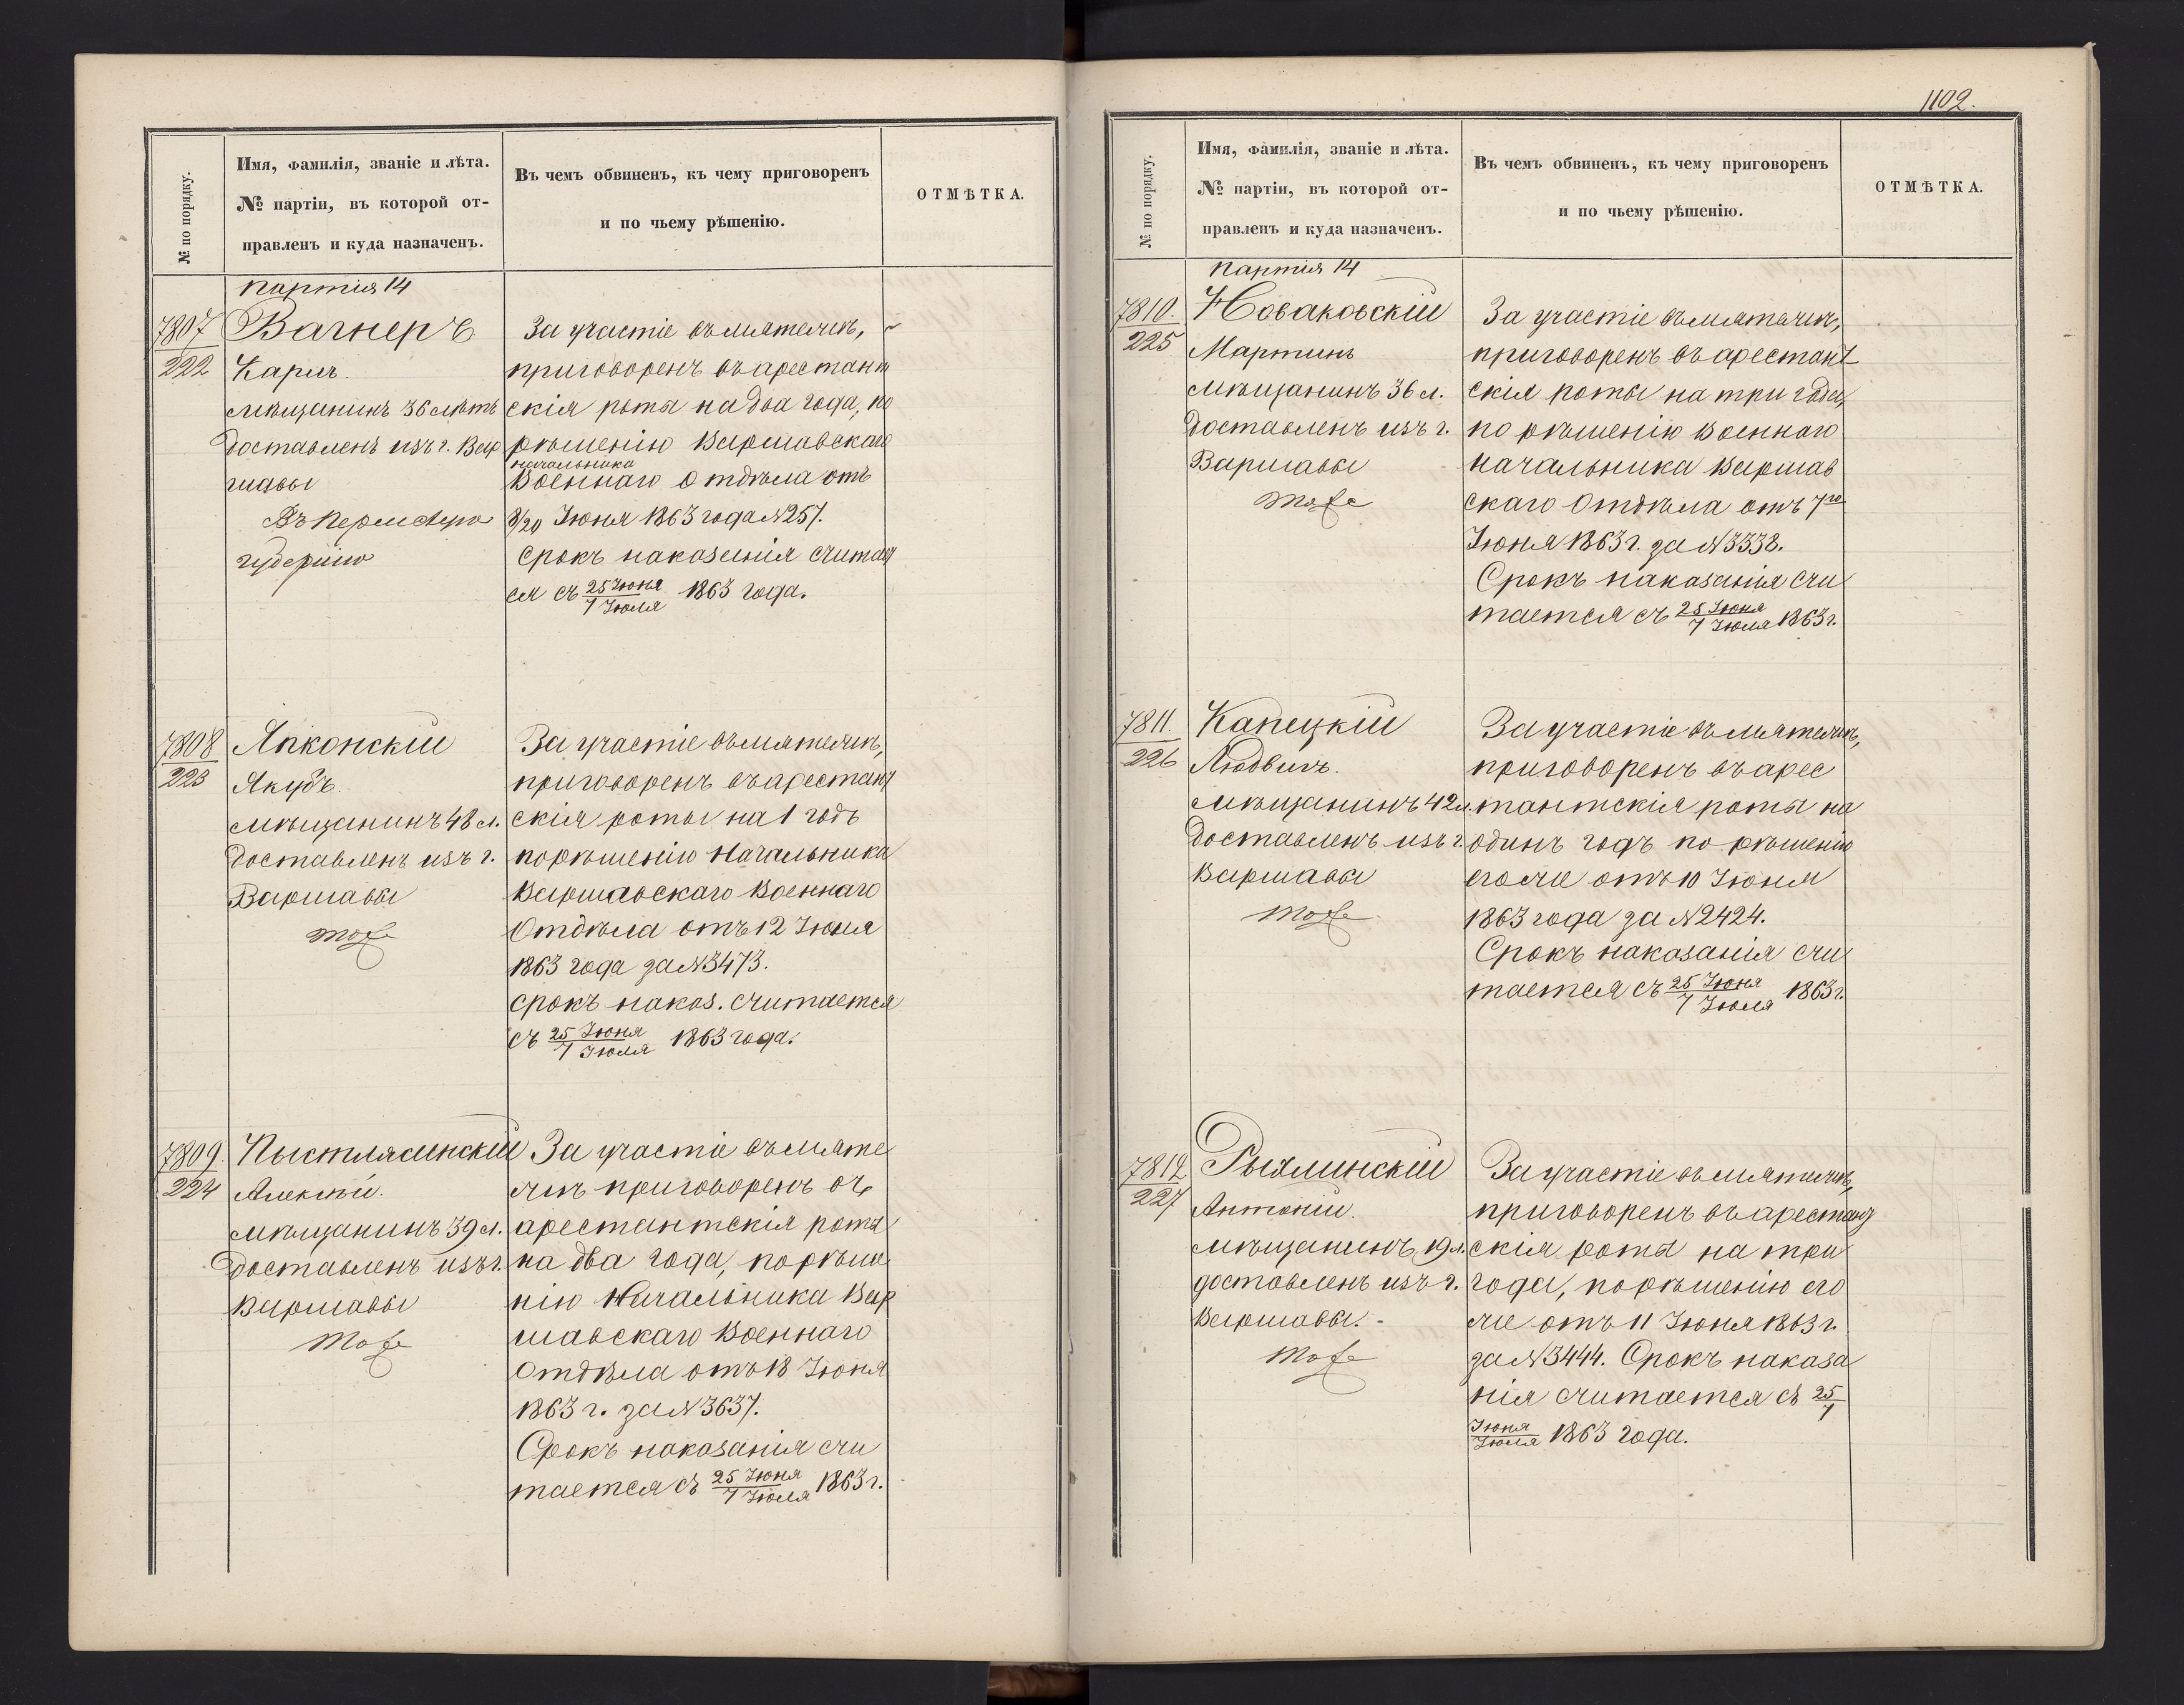 № по порядку.
Имя, фамилія, званіе и лѣта.
№ партіи, въ которой от-
правленъ и куда назначенъ.
Въ чемъ обвиненъ, къ чему приговоренъ
и по чьему рѣшенію.
ОТМѢТКА.
партія 14
7807
222
Вагнеръ
Карлъ.
мѣщанинъ 36 лѣтъ
доставленъ изъ г. Вар
шавы
Въ Пермскую
губернію
За участіе въ мятежѣ,
приговоренъ въ арестант
скія роты на два года, по
рѣшенію Варшавскаго
начальника
Военнаго Отдѣла отъ
8/20 Іюня 1863 года №257.
Срокъ наказанія считает
ся съ 25 Іюня / 7 Іюля 1863 года.
7808
223
Япконскій
Якубъ.
мѣщанинъ 48 л.
доставленъ изъ г.
Варшавы
тоже
За участіе въ мятежѣ,
приговоренъ въ арестант
скія роты на 1 годъ
по рѣшенію Начальника
Варшавскаго Военнаго
Отдѣла отъ 12 Іюня
1863 года за №3473.
срокъ наказ. считается
съ 25 Іюня / 7 Іюля 1863 года.
7809.
224
Алексѣй.
мѣщанинъ 39 л.
доставленъ изъ г.
Варшавы
тоже
За участіе въ мяте
жѣ приговоренъ въ
арестантскія роты
на два года, по рѣше
нію Начальника Вар
шавскаго Военнаго
Отдѣла отъ 18 Іюня
1863 г. за №3637.
Срокъ наказанія счи
тается съ 25 Іюня / 7 Іюля 1863 г.
1102.
№ по порядку.
Имя, фамилія, званіе и лѣта.
№ партіи, въ которой от-
правленъ и куда назначенъ.
Въ чемъ обвиненъ, къ чему приговоренъ
и по чьему рѣшенію.
ОТМѢТКА.
партія 14
7810.
225
Новаковскій
Мартинъ
мѣщанинъ 36 л.
доставленъ изъ г.
Варшавы
тоже
За участіе въ мятежѣ,
приговоренъ въ арестант
скія роты на три года,
по рѣшенію Военнаго
начальника Варшав
скаго Отдѣла отъ 7го
Іюня 1863 г. за №3338.
Срокъ наказанія счи
тается съ 25 Іюня / 7 Іюля 1863 г.
7811.
226
Капецкій
Людвигъ.
мѣщанинъ 42 л.
доставленъ изъ г.
Варшавы
тоже
За участіе въ мятежѣ,
приговоренъ въ арес
тантскія роты на
одинъ годъ по рѣшенію
егоже отъ 10 Іюня
1863 года за №2424.
Срокъ наказанія счи
тается съ 25 Іюня / 7 Іюля 1863 г.
7812
227
Рыхлинскій
Антоній.
мѣщанинъ, 19 л.
доставленъ изъ г.
Варшавы.
тоже
За участіе въ мятежѣ,
приговоренъ въ арестант
скія роты на три
года, по рѣшенію его
же отъ 11 Іюня 1863 г.
за №3444. Срокъ наказа
нія считается съ 25/7
Іюня / Іюля 1863 года.